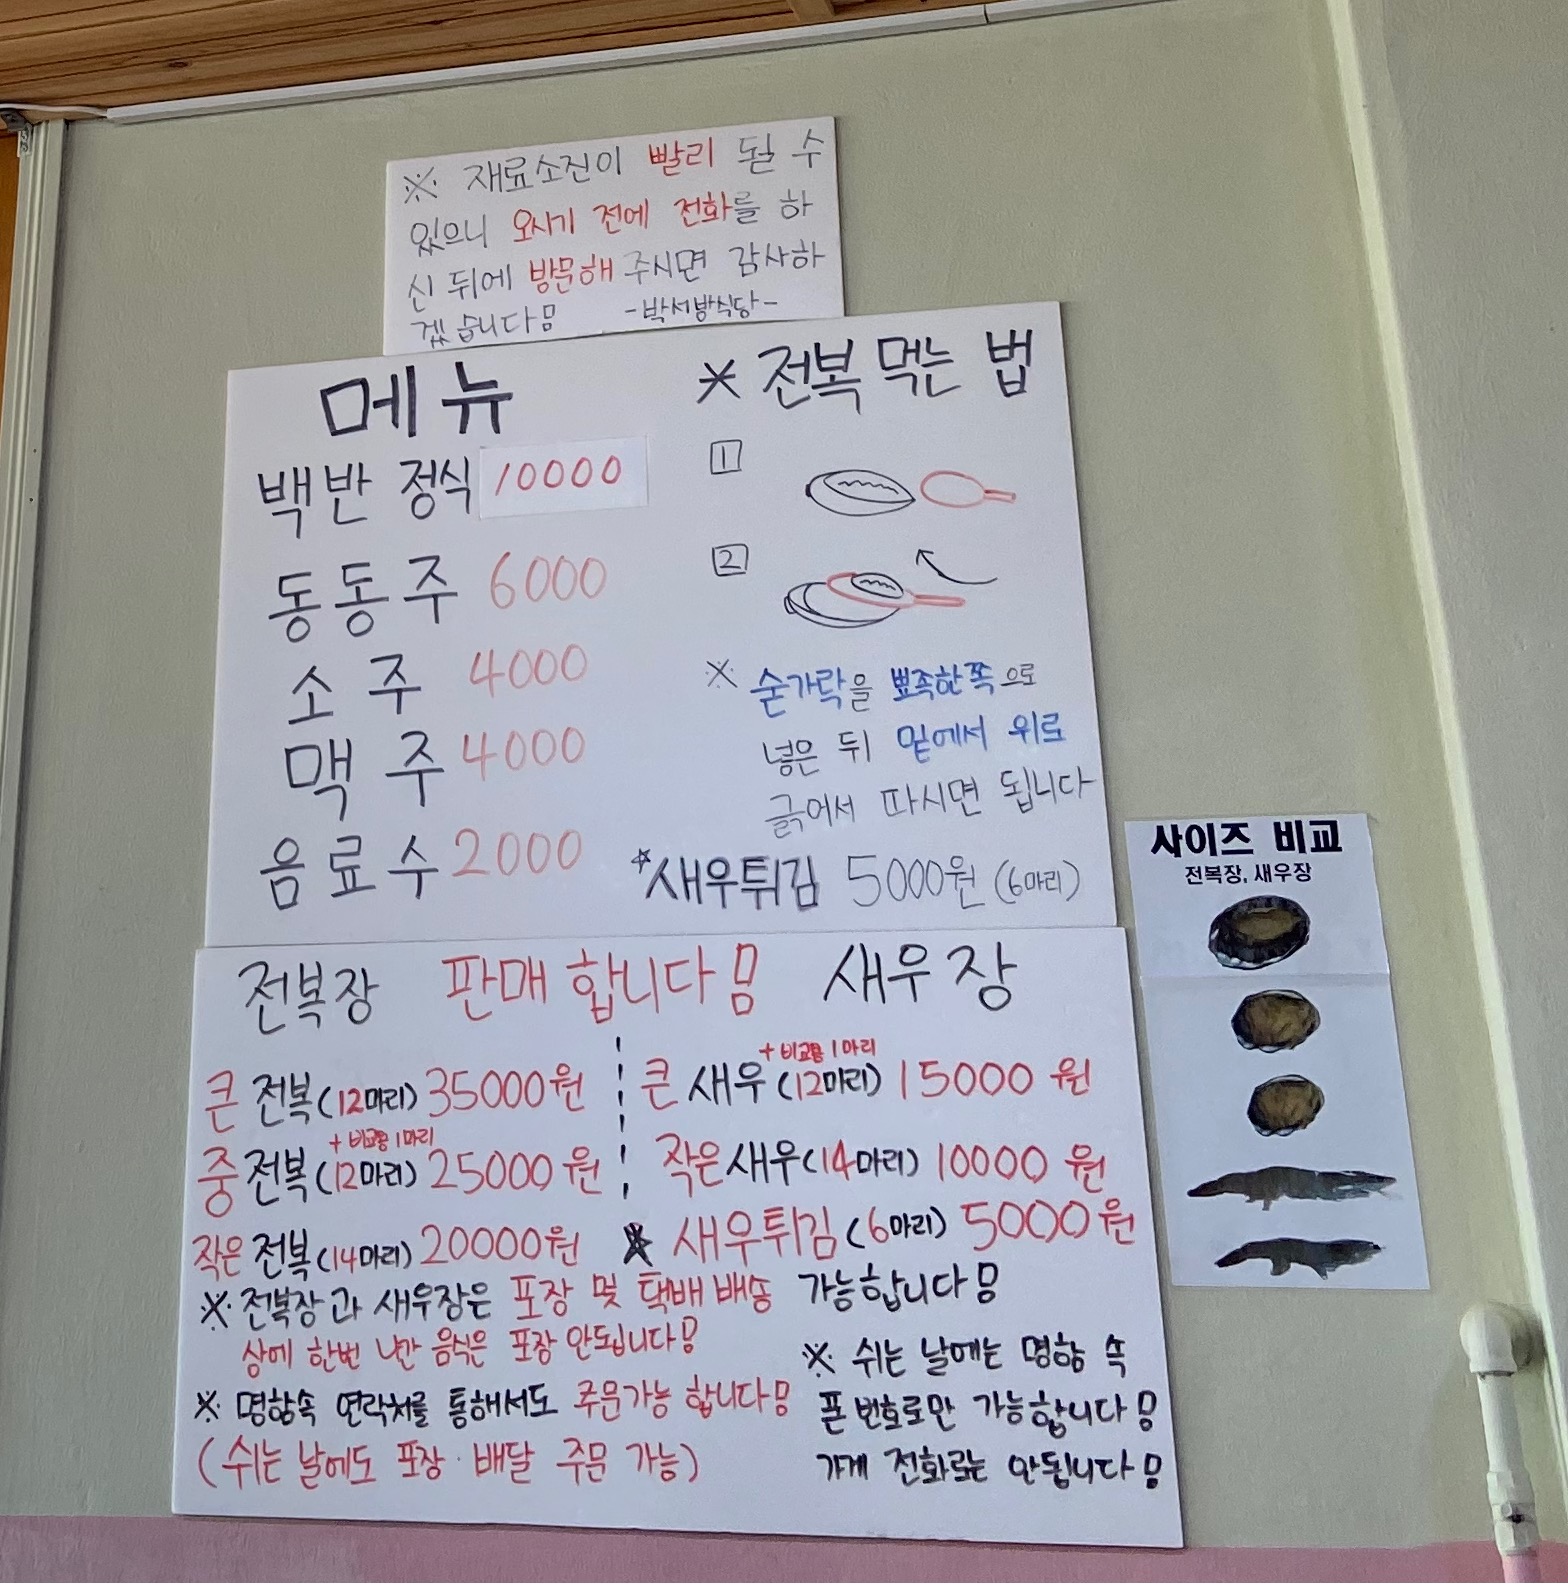 ※ 재료소진이 빨리 될 수
있으니 오시기 전에 전화를 하
신 뒤에 방문해 주시면 감사하
겠습니다!
-박서방식당-
메뉴
백반 정식 10000
동동주 6000
소주 4000
맥주 4000
음료수 2000
※ 전복 먹는 법
1
2
※ 숟가락을 뾰족한쪽으로
넣은 뒤 밑에서 위로
긁어서 파시면 됩니다
*새우튀김 5000원 (6마리)
전복장 판매합니다! 새우장
큰 전복(12마리) 35000원
+ 비교용 1마리
중 전복(12마리) 25000원
작은 전복(14마리) 20000원
+ 비교용 1마리
큰 새우(12마리) 15000원
작은새우(14마리) 10000원
★ 새우튀김(6마리) 5000원
※ 전복장과 새우장은 포장 및 택배 배송 가능합니다!
상에 한번 나간 음식은 포장 안됩니다!
※ 명함속 연락처를 통해서도 주문가능 합니다!
(쉬는 날에도 포장·배달 주문 가능)
※ 쉬는 날에는 명함 속
폰 번호로만 가능합니다!
가게 전화로는 안됩니다!
사이즈 비교
전복장, 새우장